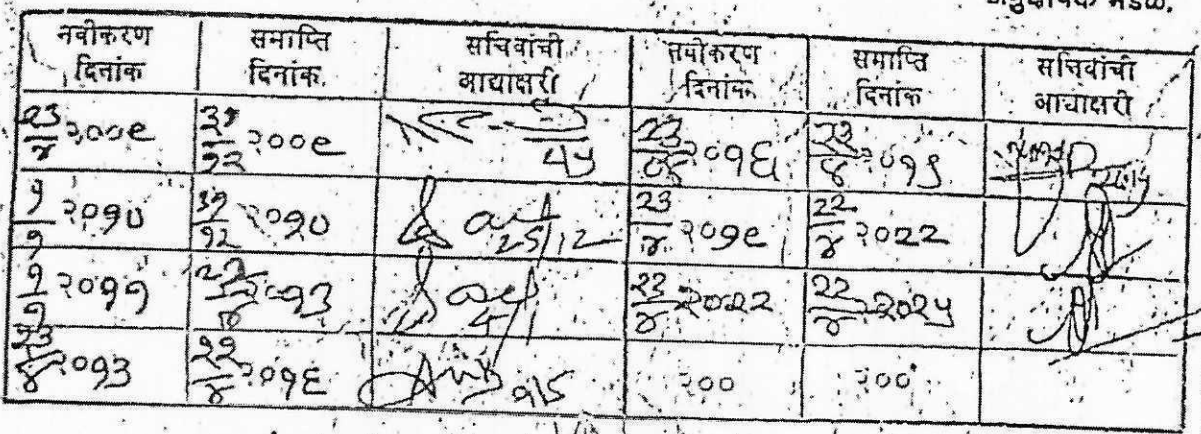 मंडळ.
नवीकरण दिनांक समाप्ति दिनांक. सचिवांची आद्याक्षरी नवीकरण दिनांक समाप्ति दिनांक सचिवांची आद्याक्षरी
२३/४ २००९ ३१/१२ २००९ २३/४ २०१६ २२/४ २०१९
१/१ २०१० ३१/१२ २०१० 25/12 २३/४ २०१९ २२/४ २०२२
१/१ २०११ २२/४ २०१३ 4/1 २३/४ २०२२ २२/४ २०२५
२३/४ २०१३ २२/४ २०१६ २०० २००